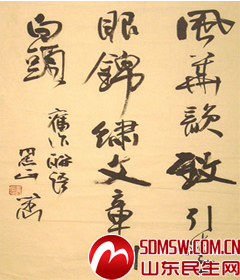 風華韻致引
眼錦繡文章
白頭
舊作聯語
SDMSW.COM.CN
山东民生网